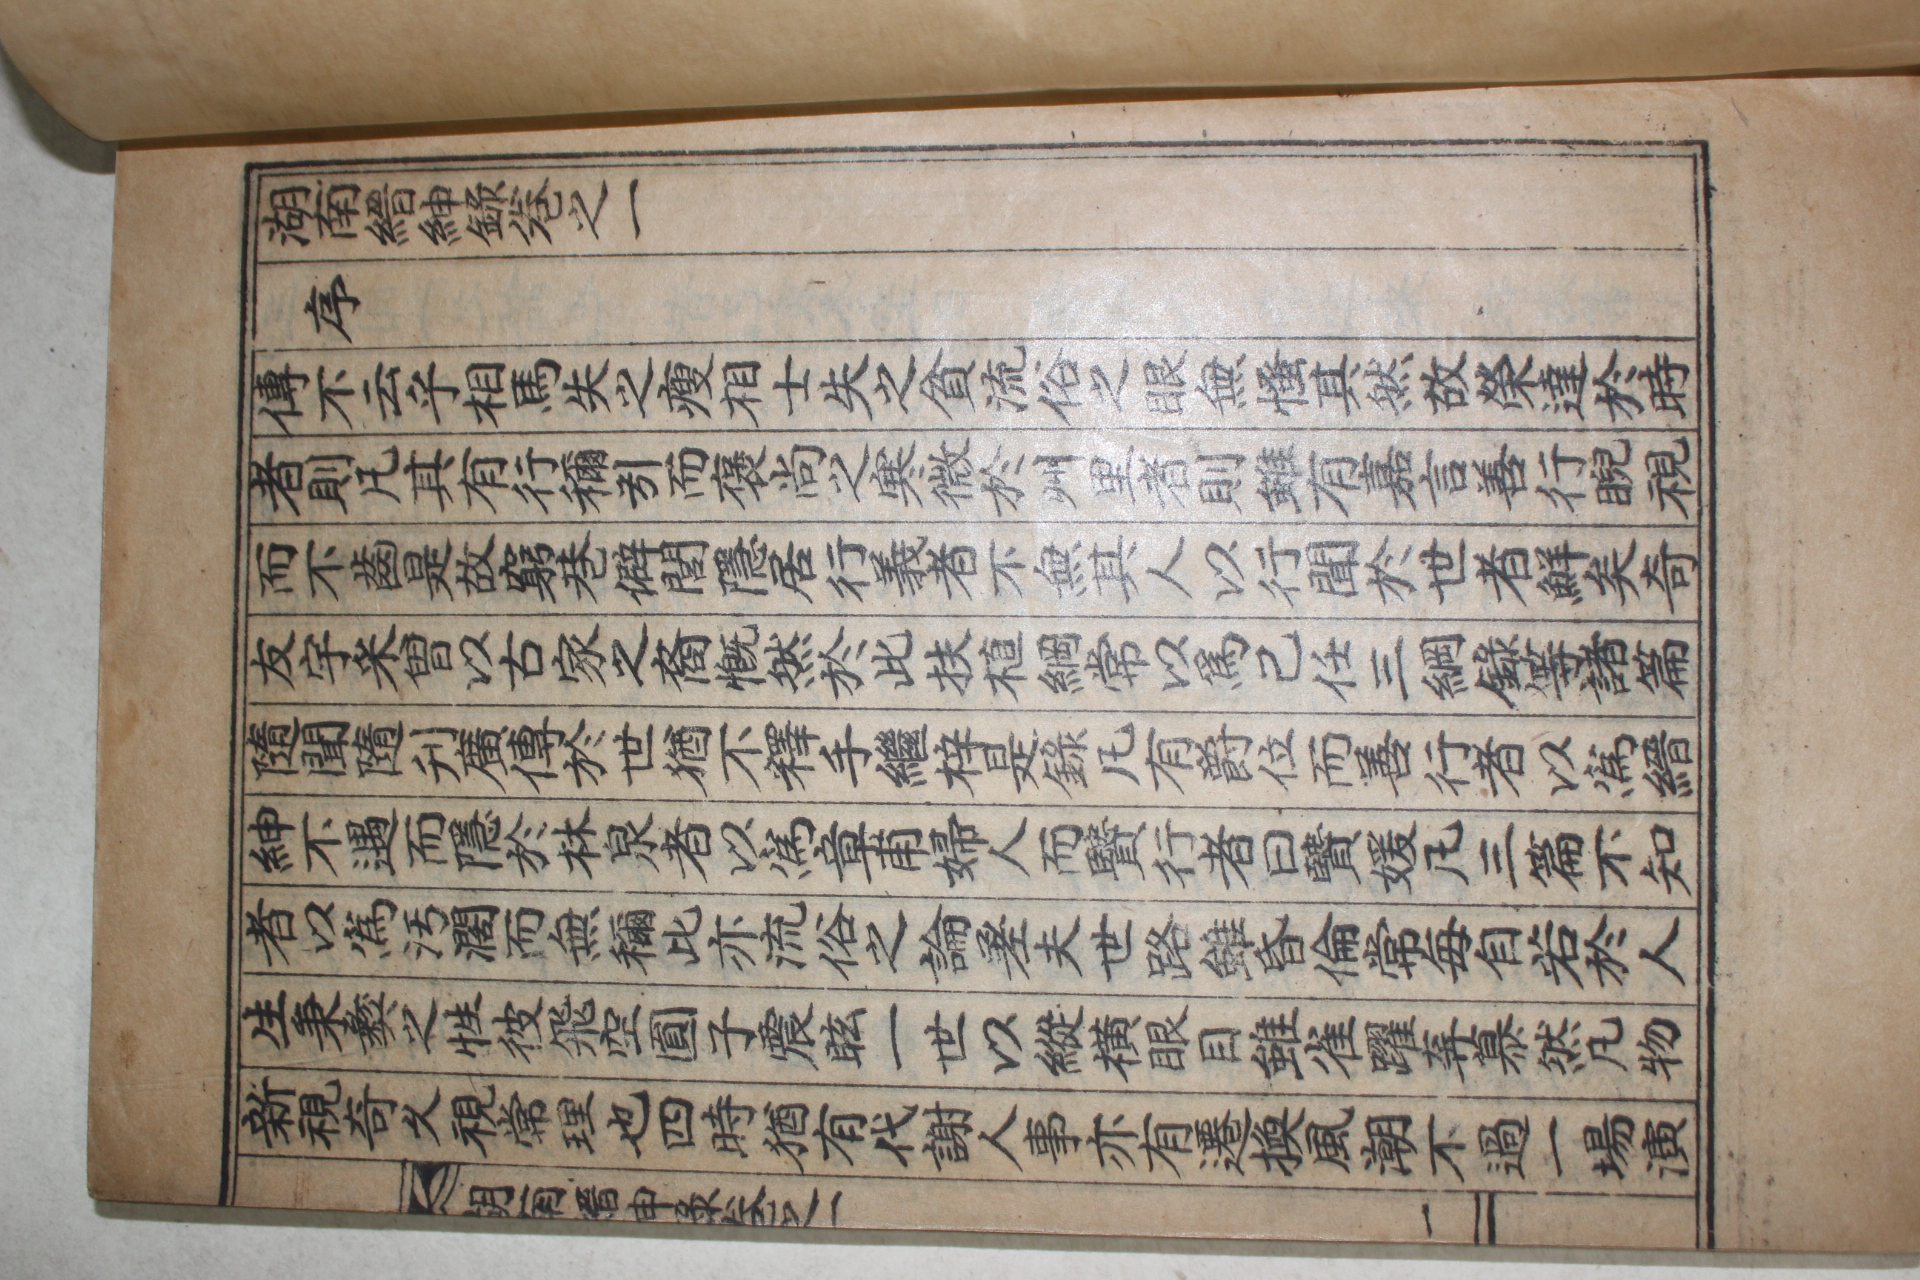 湖南縉紳錄卷之一
序
傳不云乎相馬失之瘦相士失之貧流俗之眼無恠其然故榮達於時
者則凡其有行稱引而褒尚之寒微於州里者則雖有嘉言善行睨視
而不齒是故窮巷僻閭隱居行義者不無其人以行聞於世者鮮矣奇
友宇采曾以古家之裔慨然於此扶植綱常以爲己任三綱錄等諸篇
隨聞隨刋廣傳於世猶不釋手繼梓是錄凡有爵位而善行者以爲縉
紳不遇而隱於林泉者以爲章甫婦人而賢行者曰賢媛凡三篇不知
者以爲汚濶而無稱此亦流俗之論嗟夫世路雖昏倫常每自若於人
生秉彜之性彼飛空圓子震眩一世以縱橫眼目雖雀躍奔慕然凡物
新視奇久視常理也四時猶有代謝人事亦有遷換風潮不過一場演
湖南縉紳錄卷之一
一